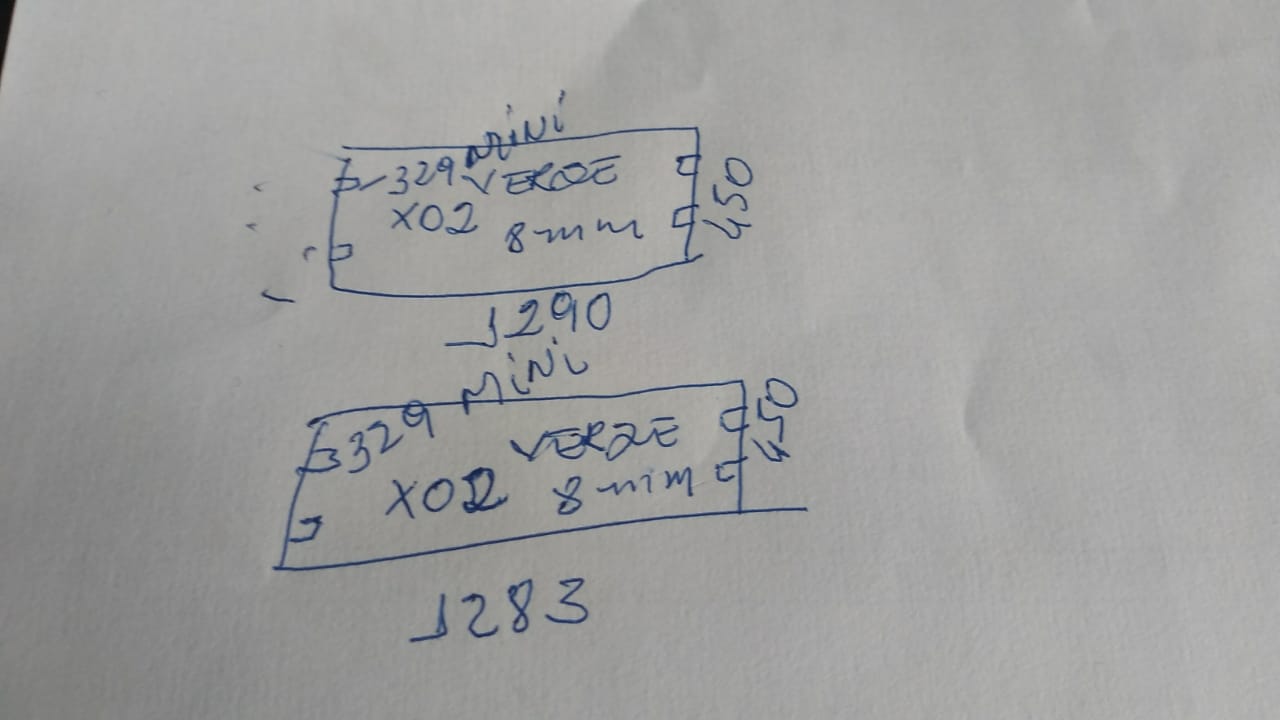 MINI
329 VERDE
X02 8mm
450
1290
MINI
329
VERDE
X02 8mm
450
1283